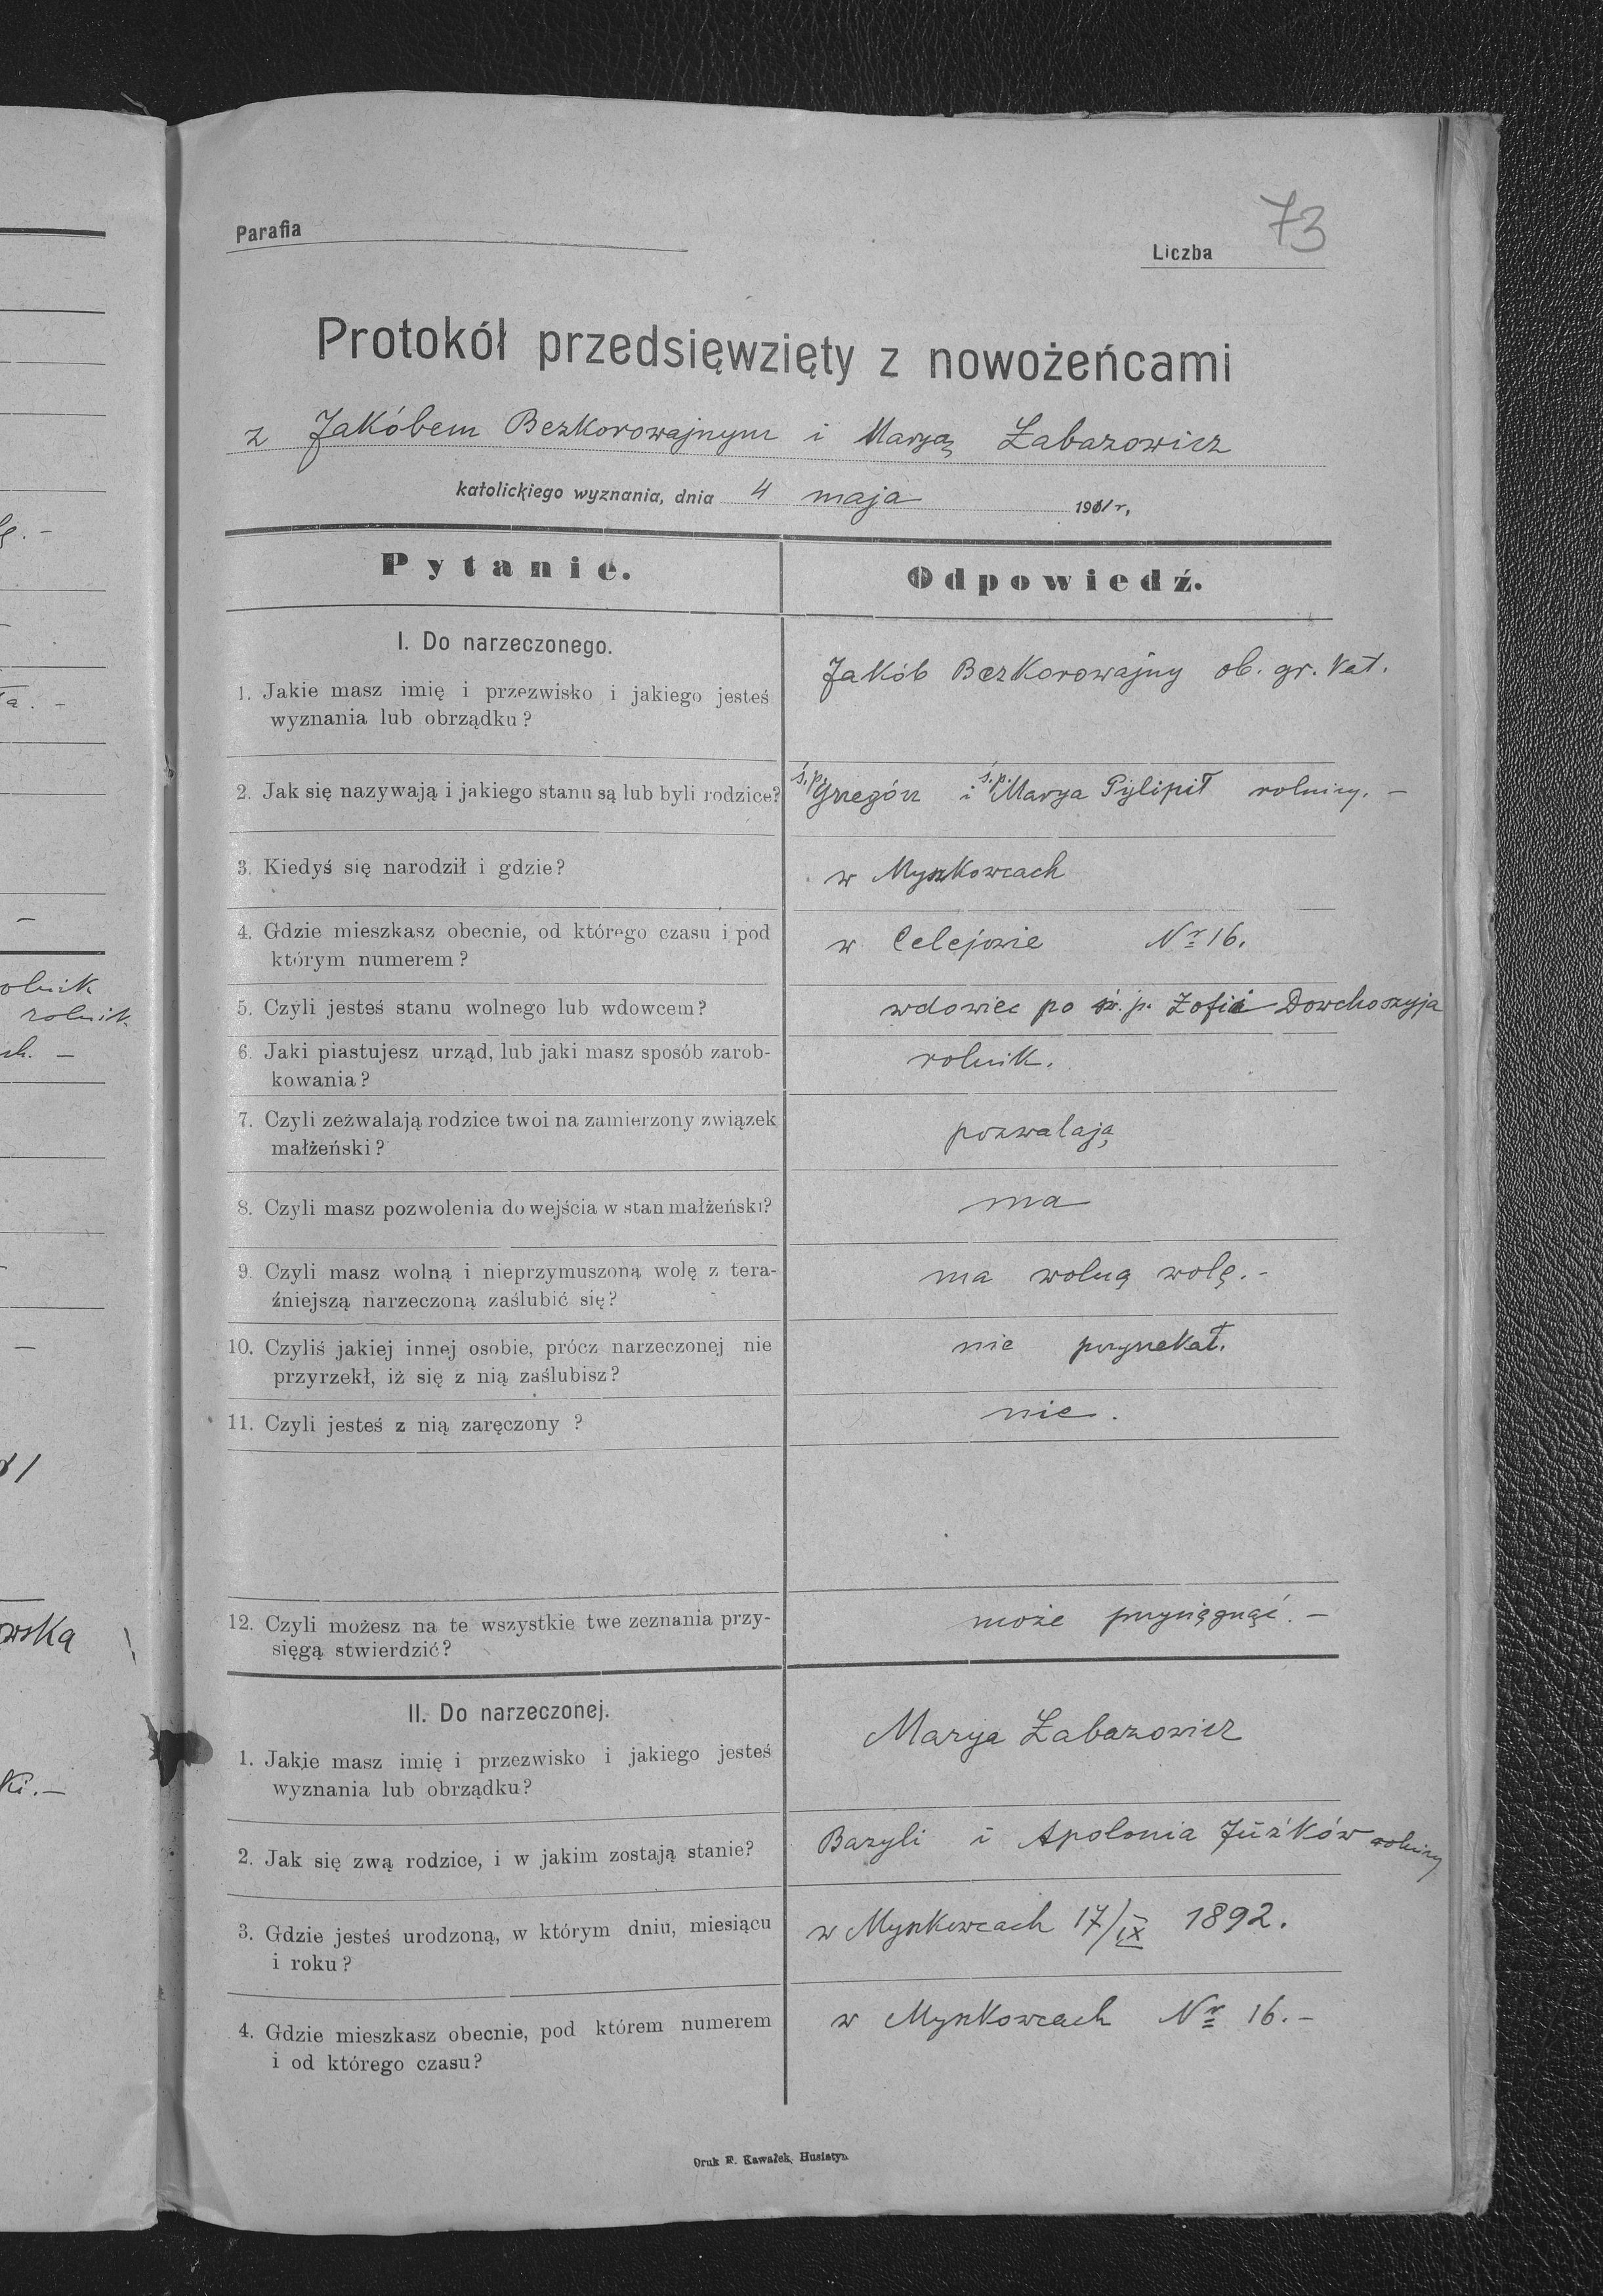 Parafia
Liczba 73
Protokół przedsięwzięty z nowożeńcami
z Jakóbem Bezkorowajnym i Maryą Łabazowicz
katolickiego wyznania, dnia 4 maja 1911 r,
Pytanie.
Odpowiedź.
I. Do narzeczonego.
1. Jakie masz imię i przezwisko i jakiego jesteś
wyznania lub obrządku?
Jakób Bezkorowajny ob. gr. kat.
2. Jak się nazywają i jakiego stanu są lub byli rodzice?
ś.p. Grzegórz i ś.p. Marya Pylipił rolnicy. –
3. Kiedyś się narodził i gdzie?
w Myszkowcach
4. Gdzie mieszkasz obecnie, od którego czasu i pod
którym numerem?
w Celejowie Nr 16.
5. Czyli jesteś stanu wolnego lub wdowcem?
wdowiec po ś. p. Zofii Dowchoszyja
6. Jaki piastujesz urząd, lub jaki masz sposób zarob-
kowania?
rolnik.
7. Czyli zezwalają rodzice twoi na zamierzony związek
małżeński?
pozwalają
8. Czyli masz pozwolenia do wejścia w stan małżeński?
ma
9. Czyli masz wolną i nieprzymuszoną wolę z tera-
źniejszą narzeczoną zaślubić się?
ma wolną wolę. -
10. Czyliś jakiej innej osobie, prócz narzeczonej nie
przyrzekł, iż się z nią zaślubisz?
nie przyrzekał.
11. Czyli jesteś z nią zaręczony ?
nie.
12. Czyli możesz na te wszystkie twe zeznania przy-
sięgą stwierdzić?
może przysięgnąć. –
II. Do narzeczonej.
1. Jakie masz imię i przezwisko i jakiego jesteś
wyznania lub obrządku?
Marya Łabazowicz
2. Jak się zwą rodzice, i w jakim zostają stanie?
Bazyli i Apolonia Juźków rolnicy
3. Gdzie jesteś urodzoną, w którym dniu, miesiącu
i roku?
w Myszkowcach 17/IX 1892.
4. Gdzie mieszkasz obecnie, pod którem numerem
i od którego czasu?
w Myszkowcach Nr 16. –
Druk F. Kawałek, Husiatyn
olnik
rolnik
ch. –
owską
ki. –